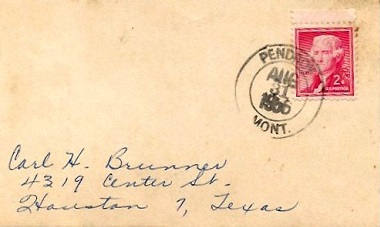 PENDROY
AUG
31
1956
MONT.
2¢
JEFFERSON
Carl H. Brunner
4319 Center St.
Houston 7, Texas